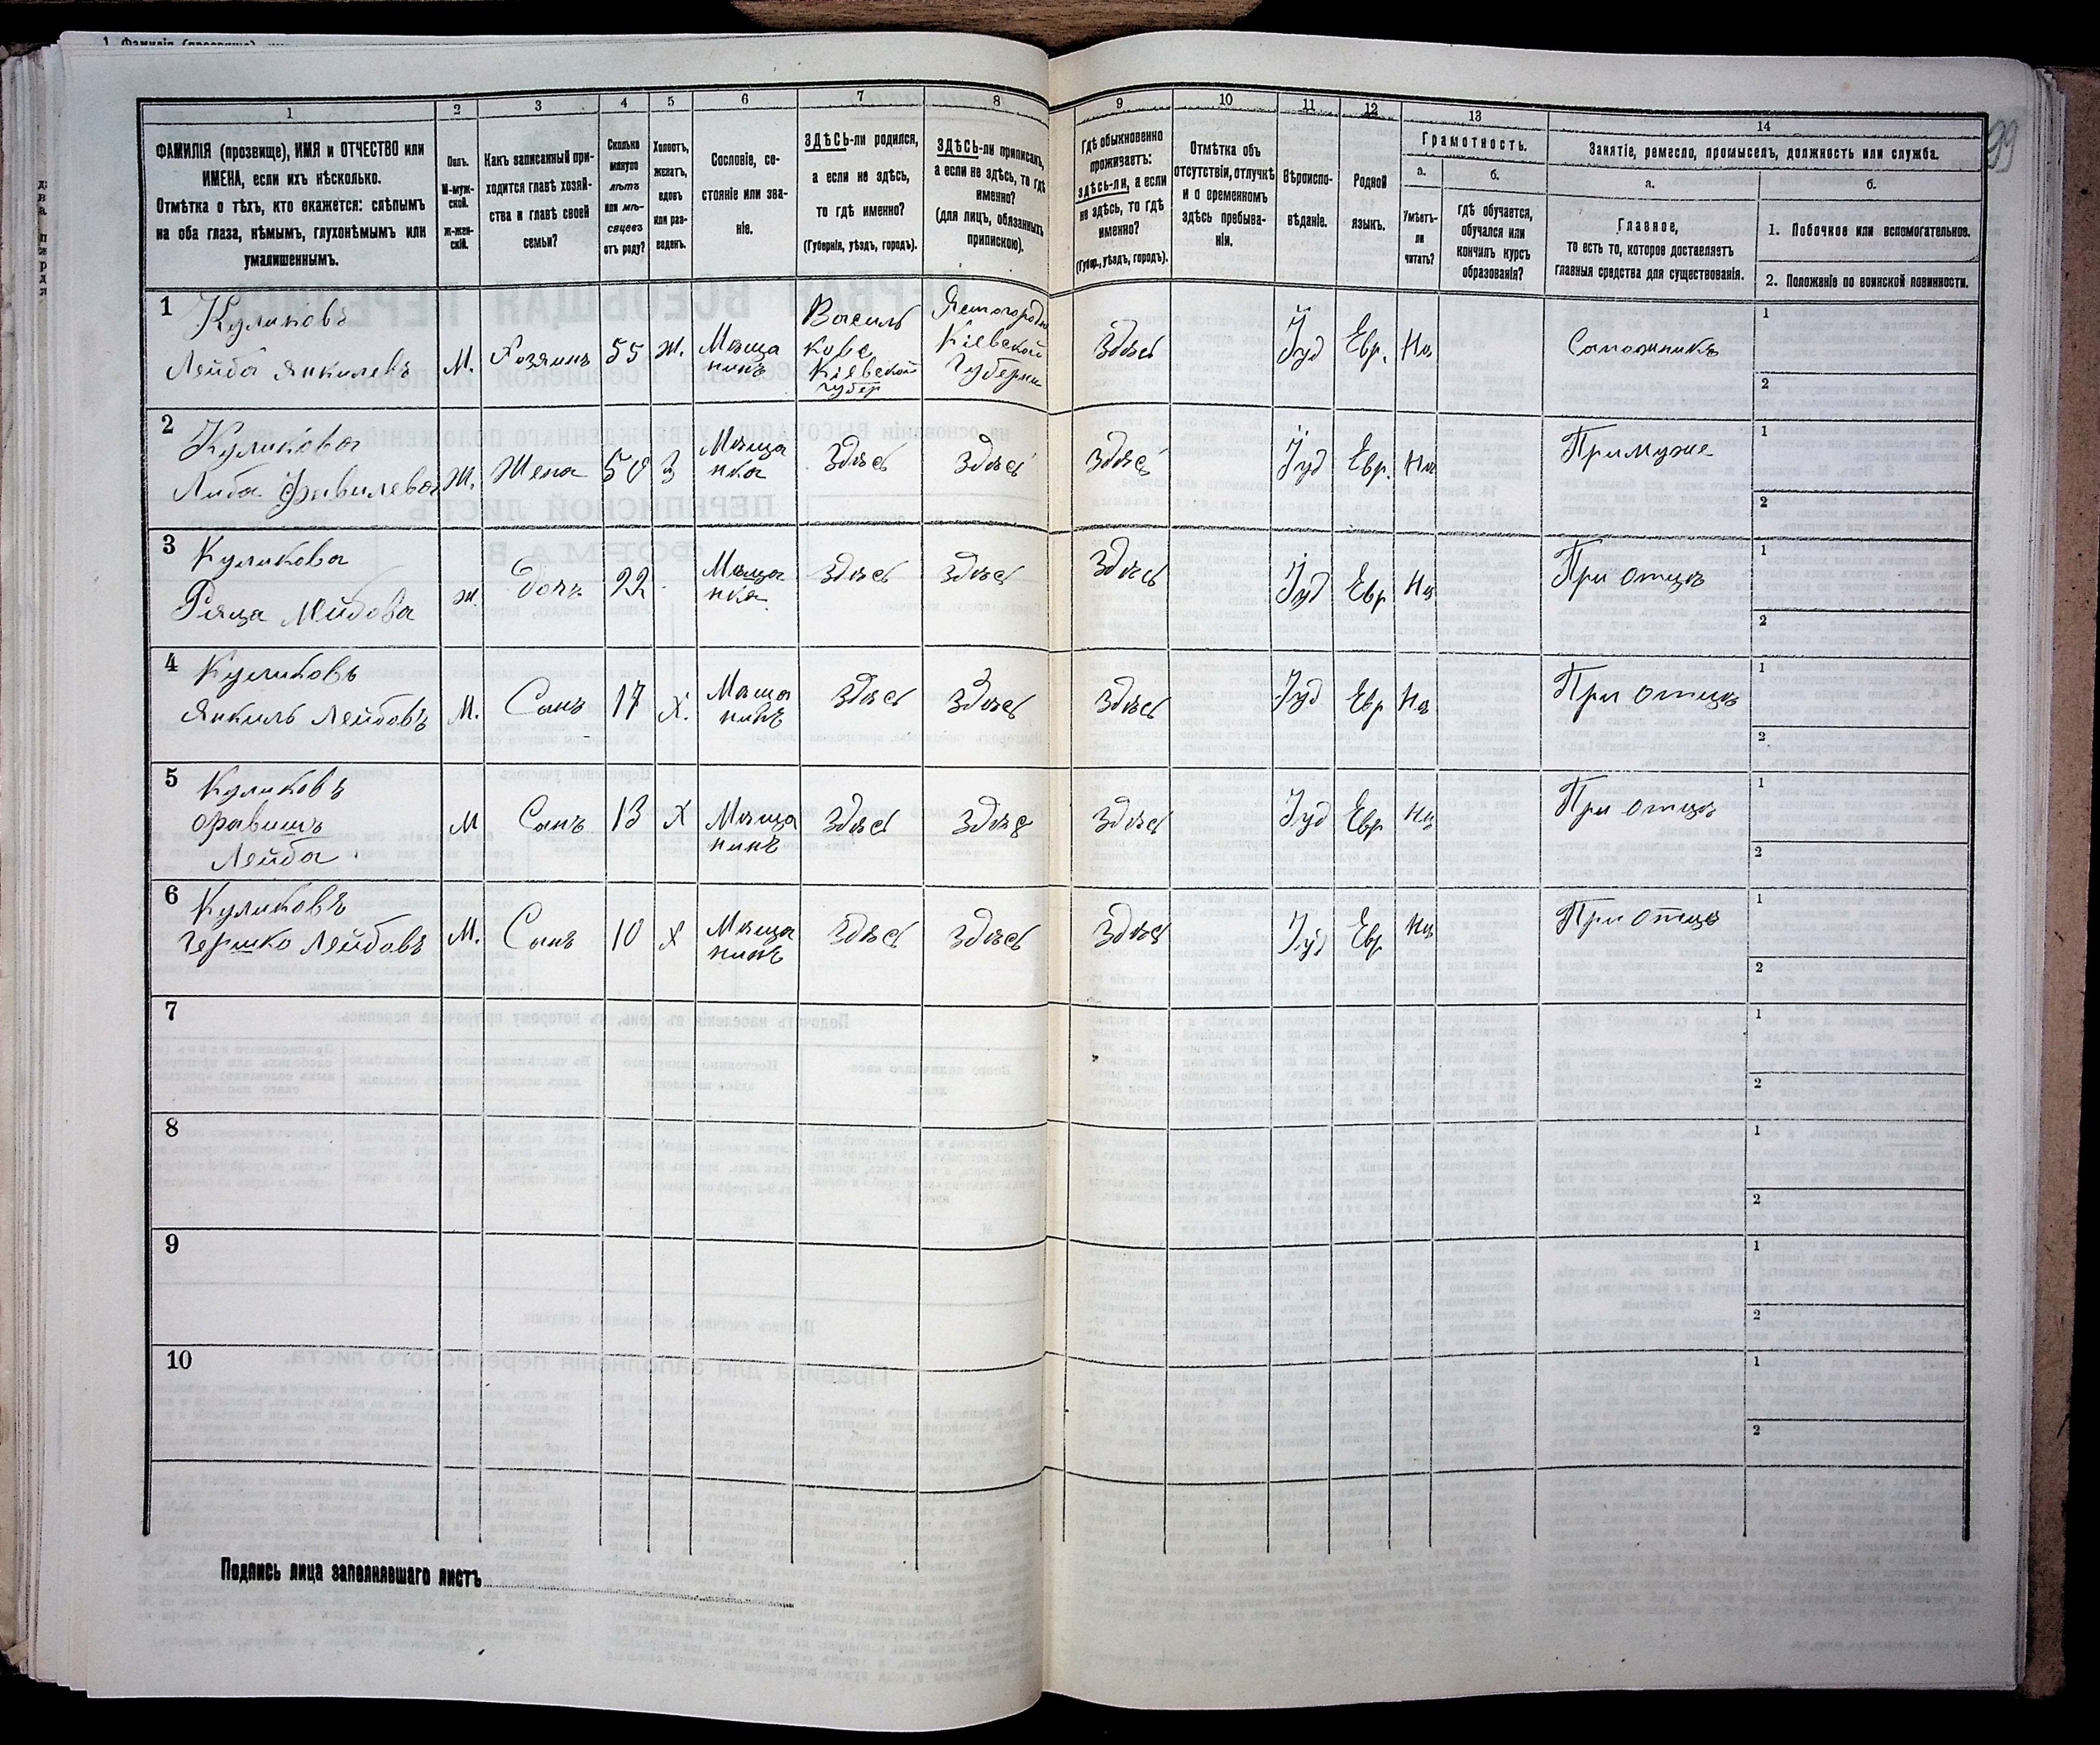 1
ФАМИЛІЯ (прозвище), ИМЯ и ОТЧЕСТВО или
ИМЕНА, если ихъ нѣсколько.
Отмѣтка о тѣхъ, кто окажется: слѣпымъ
на оба глаза, нѣмымъ, глухонѣмымъ или
умалишеннымъ.
2
Полъ.
М-муж-
ской.
ж-жен-
скій.
3
Какъ записанный при-
ходится главѣ хозяй-
ства и главѣ своей
семьи?
4
Сколько
минуло
лѣтъ
или мѣ-
сяцевъ
отъ роду?
5
Холостъ,
женатъ,
вдовъ
или раз-
веденъ.
6
Сословіе, со-
стояніе или зва-
ніе.
7
ЗДѢСЬ-ли родился,
а если не здѣсь,
то гдѣ именно?
(Губернія, уѣздъ, городъ).
8
ЗДѢСЬ-ли приписанъ,
а если не здѣсь, то гдѣ
именно?
(для лицъ, обязанныхъ
припискою).
9
Гдѣ обыкновенно
проживаетъ:
здѣсь-ли, а если
не здѣсь, то гдѣ
именно?
(Губер., уѣздъ, городъ).
10
Отмѣтка объ
отсутствіи, отлучкѣ
и о временномъ
здѣсь пребыва-
ніи.
11
Вѣроиспо-
вѣданіе.
12
Родной
языкъ.
13
Грамотность.
а.
Умѣетъ-
ли
читать?
б.
гдѣ обучается,
обучался или
кончилъ курсъ
образованія?
14
Занятіе, ремесло, промыселъ, должность или служба.
а.
Главное,
то есть то, которое доставляетъ
главныя средства для существованія.
б.
1. Побочное или вспомогательное.
2. Положеніе по воинской повинности.
99
1
Куликовъ
Лейба Янкилевъ
М.
Хозяинъ
55
Ж.
Мѣща
нинъ
Василь
ковъ
Кіевской
губер
Кіевской
Губерни
Здѣсь
Іуд
Евр.
Нѣ
Сапожникъ
1
2
2
Куликова
Ж.
Жена
50
З
Мѣща
нка
Здѣсь
Здѣсь
Здѣсь
Іуд
Евр.
Нѣ
При муже
1
2
3
Куликова
Лейбова
Ж
дочь
22
Мѣща
нка
Здѣсь
Здѣсь
Здѣсь
Іуд
Евр
Нѣ
При отцѣ
1
2
4
Куликовъ
Янкиль Лейбовъ
М.
Сынъ
17
Х.
Мѣща
нинъ
Здѣсь
Здѣсь
Здѣсь
Іуд
Евр
Нѣ
При отцѣ
1
2
5
Куликовъ
Лейба
М
Сынъ
13
Х
Мѣща
нинъ
Здѣсь
Здѣсь
Здѣсь
Іуд
Евр
Нѣ
При отцѣ
1
2
6
Куликовъ
Гершко Лейбовъ
М.
Сынъ
10
Х
Мѣща
нинъ
Здѣсь
Здѣсь
Здѣсь
Іуд
Евр
Нѣ
При отцѣ
1
2
7
1
2
8
1
2
9
1
2
10
1
2
Подпись лица заполнявшаго листъ